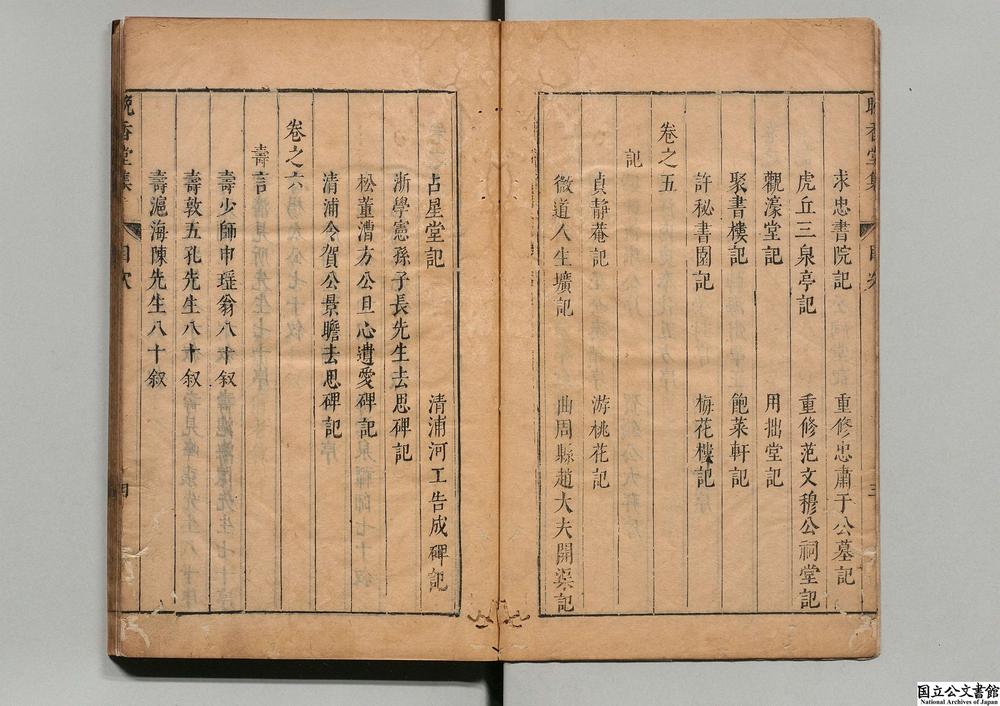 求忠書院記　重修忠肅于公墓記
虎丘三泉亭記　重修范文穆公祠堂記
觀濠堂記　用拙堂記
聚書樓記　飽菜軒記
許秘書園記　梅花樓記
卷之五
記
貞靜菴記　游桃花記
微道人生壙記　曲周縣趙大夫開渠記
晚香堂集　目次　三
占星堂記　清浦河工告成碑記
浙學憲孫子長先生去思碑記
松董漕方公旦心遺愛碑記
清浦令賀公景瞻去思碑記
卷之六
壽言
壽少師申瑤翁八十叙
壽敦五孔先生八十叙
壽滬海陳先生八十叙
晚香堂集　目次　四
国立公文書館
National Archives of Japan